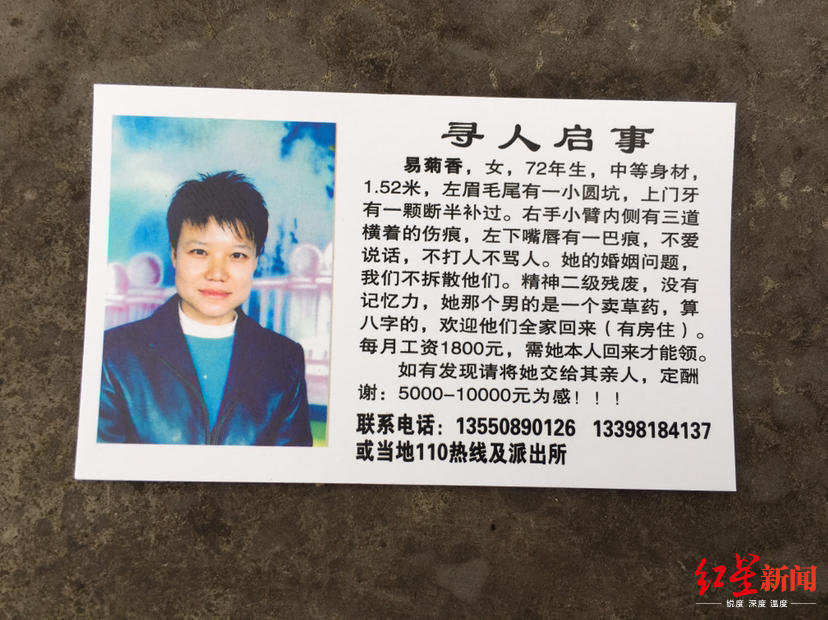 寻人启事
易菊香，女，72年生，中等身材，
1.52米，左眉毛尾有一小圆坑，上门牙
有一颗断半补过。右手小臂内侧有三道
横着的伤痕，左下嘴唇有一巴痕，不爱
说话，不打人不骂人。她的婚姻问题，
我们不拆散他们。精神二级残废，没有
记忆力，她那个男的是一个卖草药，算
八字的，欢迎他们全家回来（有房住）。
每月工资1800元，需她本人回来才能领。
如有发现请将她交给其亲人，定酬
谢：5000-10000元为感！！！
联系电话：13550890126 13398184137
或当地110热线及派出所
红星新闻
锐度 深度 温度